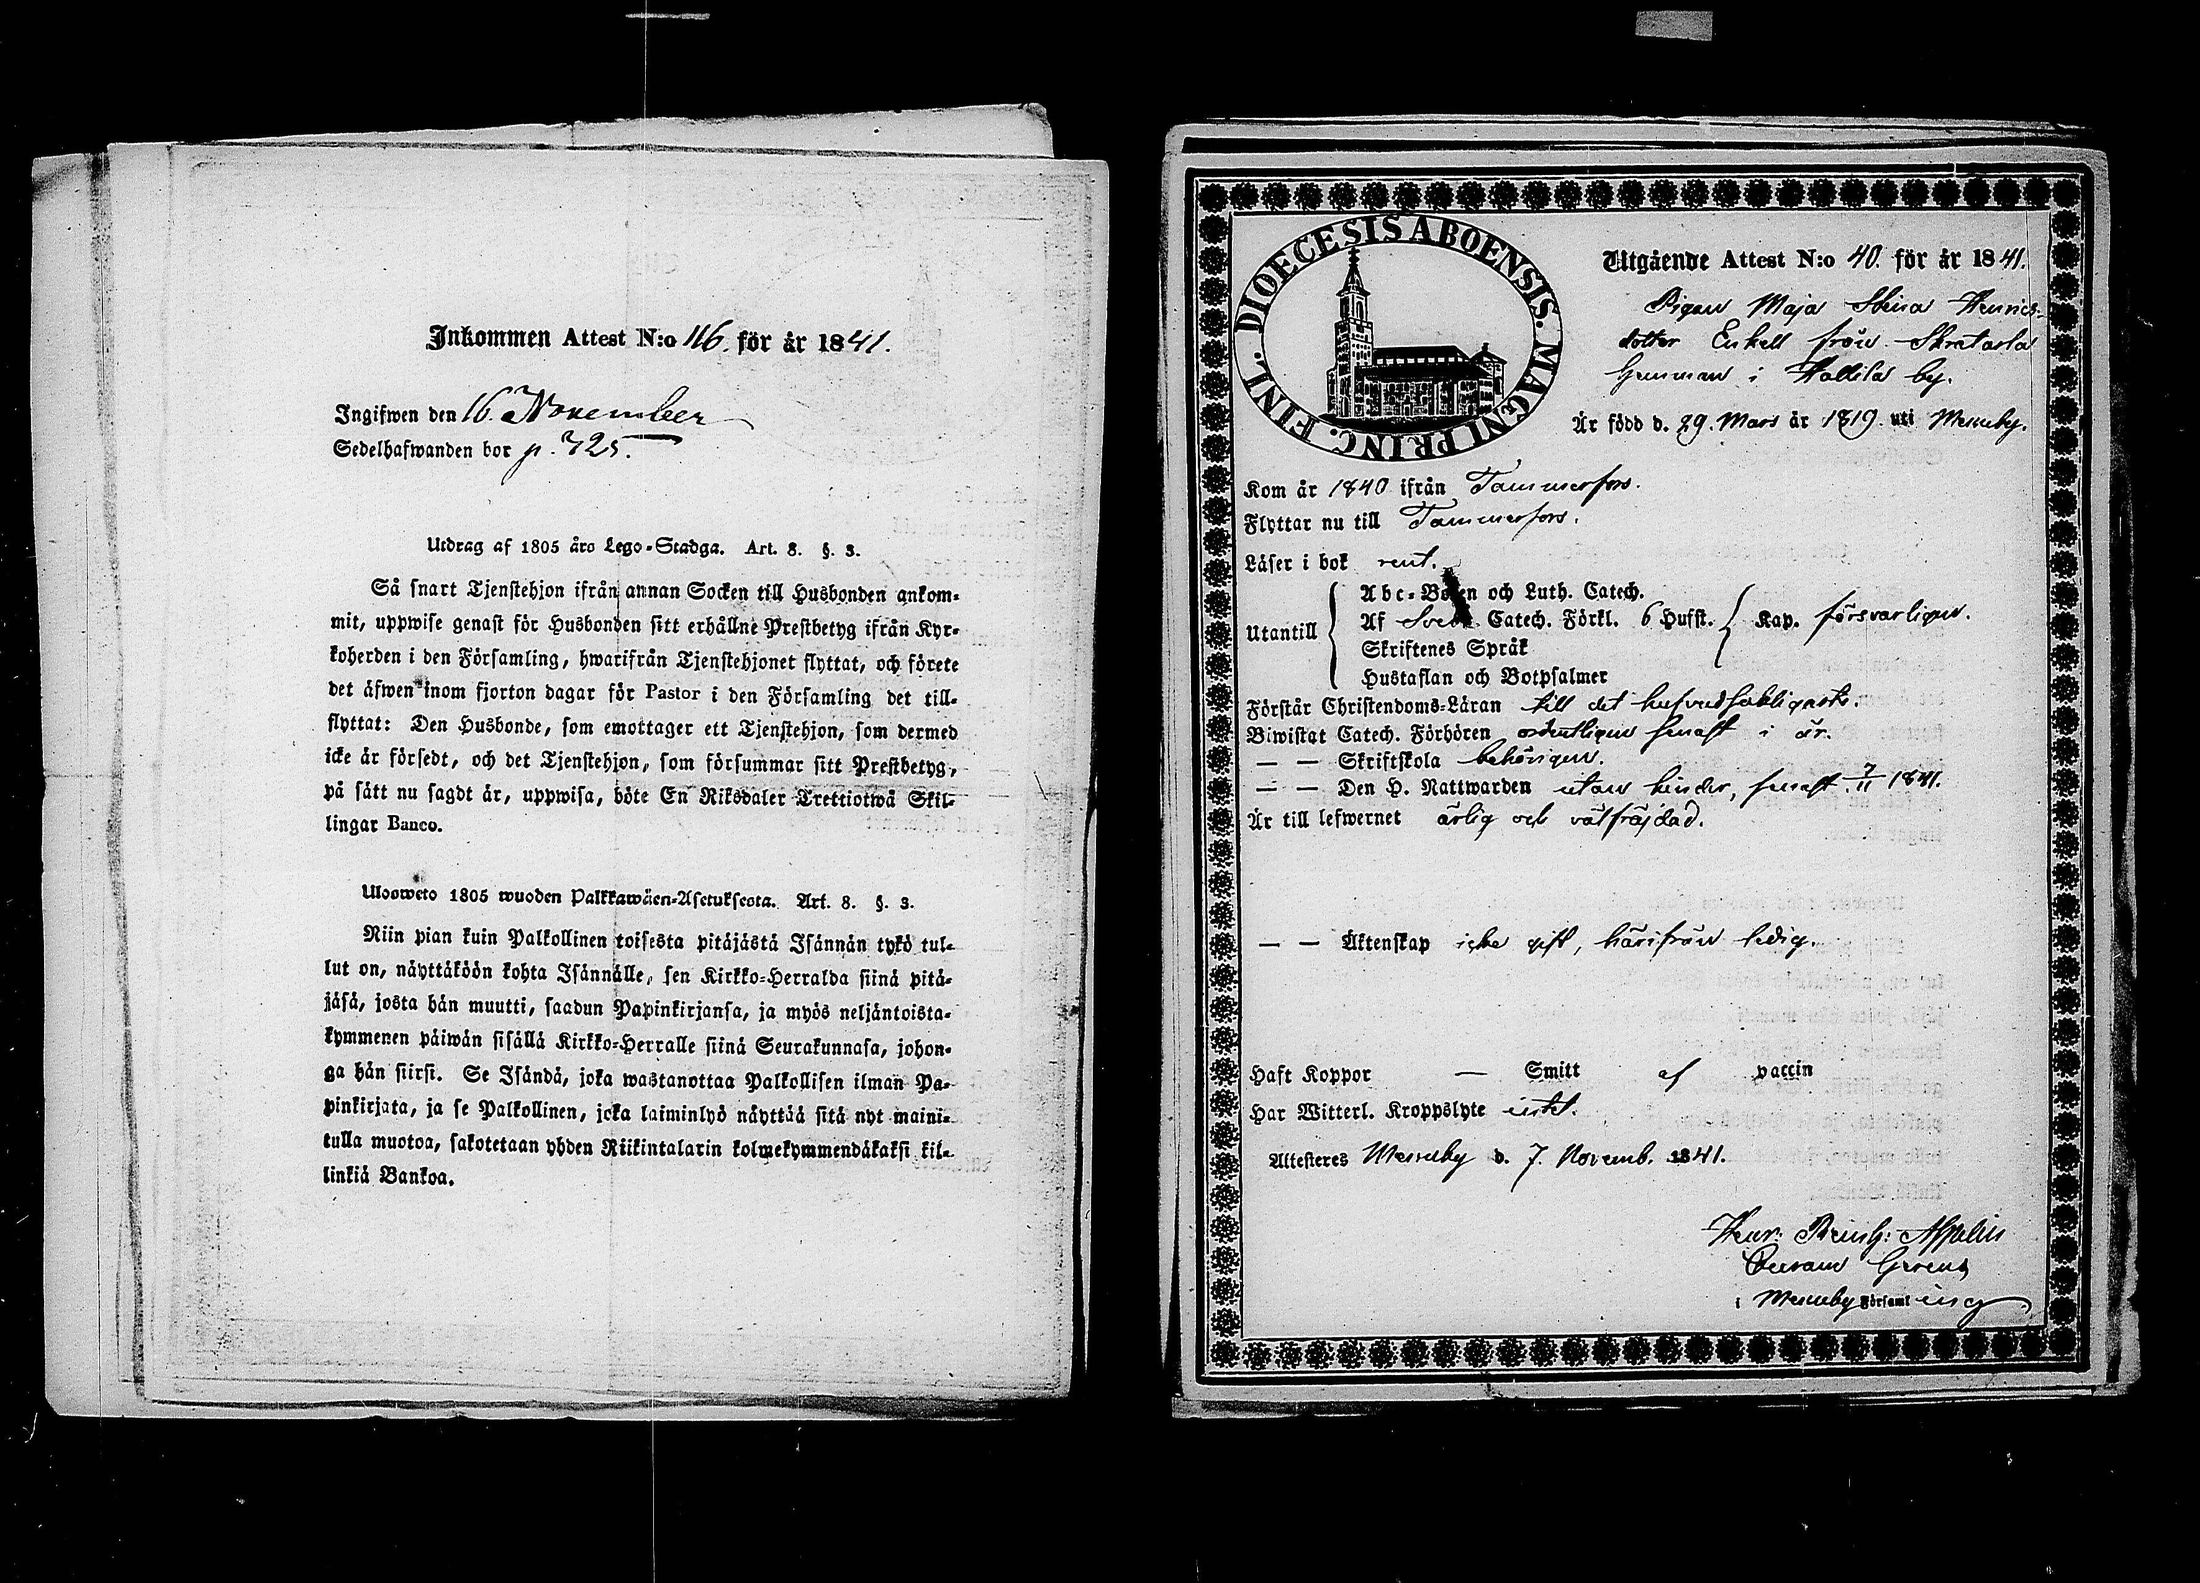 Inkommen Attest N:o 116. för år 1841.
Ingifwen den 16. November
Sedelhafwanden bor p. 725.
Utdrag af 1805 års Lego-Stadga. Art. 8. §. 3.
Så snart Tjenstehjon ifrån annan Socken till Husbonden ankom-
mit, uppwise genast för Husbonden sitt erhållne Prestbetyg ifrån Kyr-
koherden i den Församling, hwarifrån Tjenstehjonet flyttat, och förete
det äfwen inom fjorton dagar för Pastor i den Församling det till-
flyttat: Den Husbonde, som emottager ett Tjenstehjon, som dermed
icke är försedt, och det Tjenstehjon, som försummar sitt Prestbetyg,
på sätt nu sagdt är, uppwisa, böte En Riksdaler Trettiotwå Skil-
lingar Banco.
Ulosweto 1805 wuoden Palkkawäen-Asetuksesta. Art. 8. §. 3.
Niin pian kuin Palkollinen toisesta pitäjästä Isännän tykö tul-
lut on, näyttäköön kohta Isännälle, sen Kirkko-Herralda siinä pitä-
jäsä, josta hän muutti, saadun Papinkirjansa, ja myös neljäntoista-
kymmenen päiwän sisällä Kirkko-Herralle siinä Seurakunnasa, johon-
ga hän siirsi. Se Isändä, joka wastanottaa Palkollisen ilman Pa-
pinkirjata, ja se Palkollinen, joka laiminlyö näyttää sitä nyt maini-
tulla muotoa, sakotetaan yhden Riikintalarin kolmekymmendäkaksi kil-
linkiä Bankoa.
DIOECESIS ABOENSIS. MAGNI PRINC. FINL.
Utgående Attest N:o 40. för år 1841.
Pigan Maja Stina Henrics-
dotter Enkell från Skratarla
Hemman i Hallila by.
Är född d. 29. Mars år 1819. uti Messuby.
Kom år 1840 ifrån Tammerfors.
Flyttar nu till Tammerfors.
Läser i bok rent.
Utantill
Abc-Boken och Luth. Catech.
Af Sveb. Catech. Förkl. 6 Hufst. Kap. försvarligen.
Skriftenes Språk
Hustaflan och Botpsalmer
Förstår Christendoms-Läran till det hufvudsakligaste.
Biwistat Catech. Förhören ordentligen senast i år.
— — Skriftskola behörigen.
— — Den H. Nattwarden utan hinder, senast 7/11 1841.
Är till lefwernet ärlig och välfräjdad.
— — Äktenskap icke gift, härifrån ledig.
Haft Koppor — Smitt af vaccin
Har Witterl. Kroppslyte intet.
Attesteres Messuby d. 7. Novemb. 1841.
Henr: Reinh: Aspelin
Gerens
i Messuby Församling